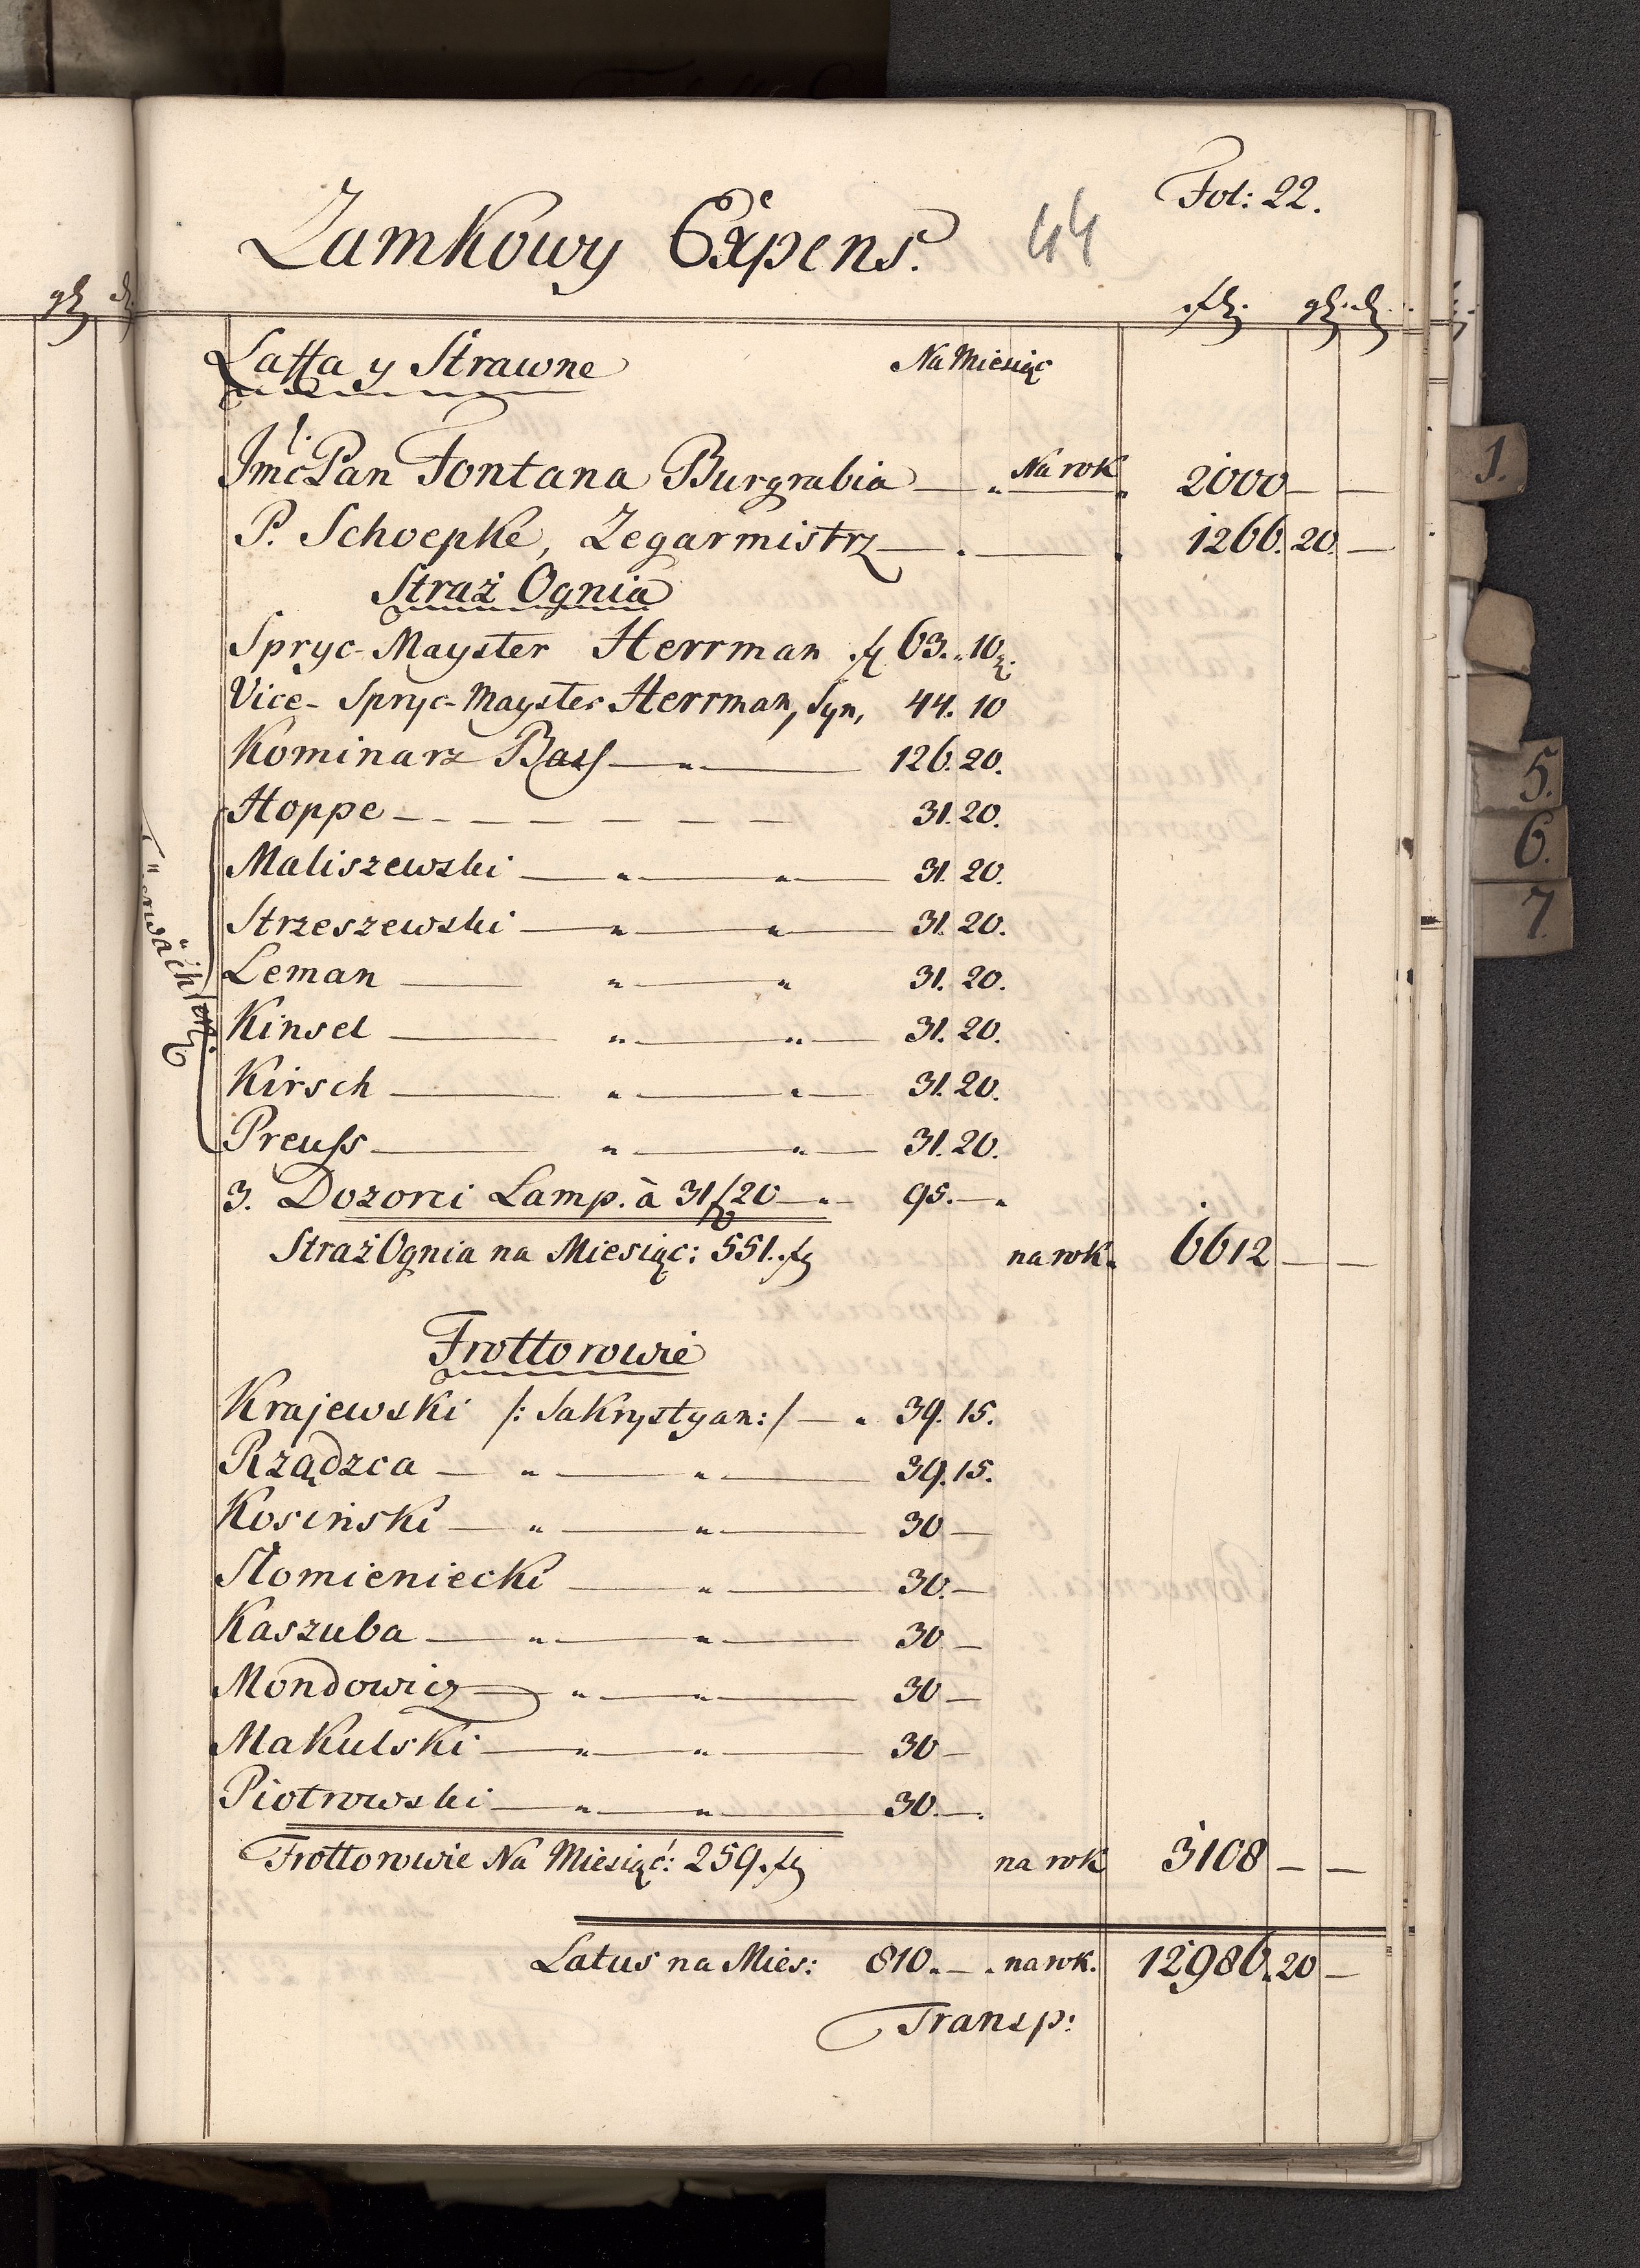 Fol: 22.
Zamkowy Expens. 44
Laffa y Strawne Na Miesiąc
Jmć Pan Fontana Burgrabia — „ Na rok „ 2000 — —
P. Schoepke, Zegarmistrz — . — . 1266. 20. —
Straż Ognia
Spryc-Mayster Herrman fl 63. „ 10
Vice-Spryc-Mayster Herrman, Syn, 44. 10
Kominarz Bass — „ — 126. 20.
Hoppe — — — — — — — 31. 20.
Maliszewski — „ — „ — 31. 20.
Strzeszewski — „ — „ — 31. 20.
Leman — „ — „ 31. 20.
Kinsel — „ — „ — 31. 20.
Kirsch — „ — „ — 31. 20.
Preuſs — „ — „ — 31. 20.
3. Dozorci Lamp. à 31/20 — „ — 95. — „
Straż Ognia na Miesiąc: 551. fl na rok. 6612 — —
Frottorowie
Krajewski /: Sakrystyan: / — „ 39. 15.
Rządzca — „ — „ — 39. 15.
Kosiński — „ — „ — 30 —
Słomieniecki — „ — 30. —
Kaszuba — „ — „ — 30 —
Mondowicz — „ — „ — 30 —
Makulski — „ — „ — 30 —
Piotrowski — „ — „ — 30. —.
Frottorowie Na Miesiąc: 259. fl na rok 3108 — —
Latus na Mies: 810. — . na rok. 12986. 20 —
Transp:
1.
5.
6.
7.